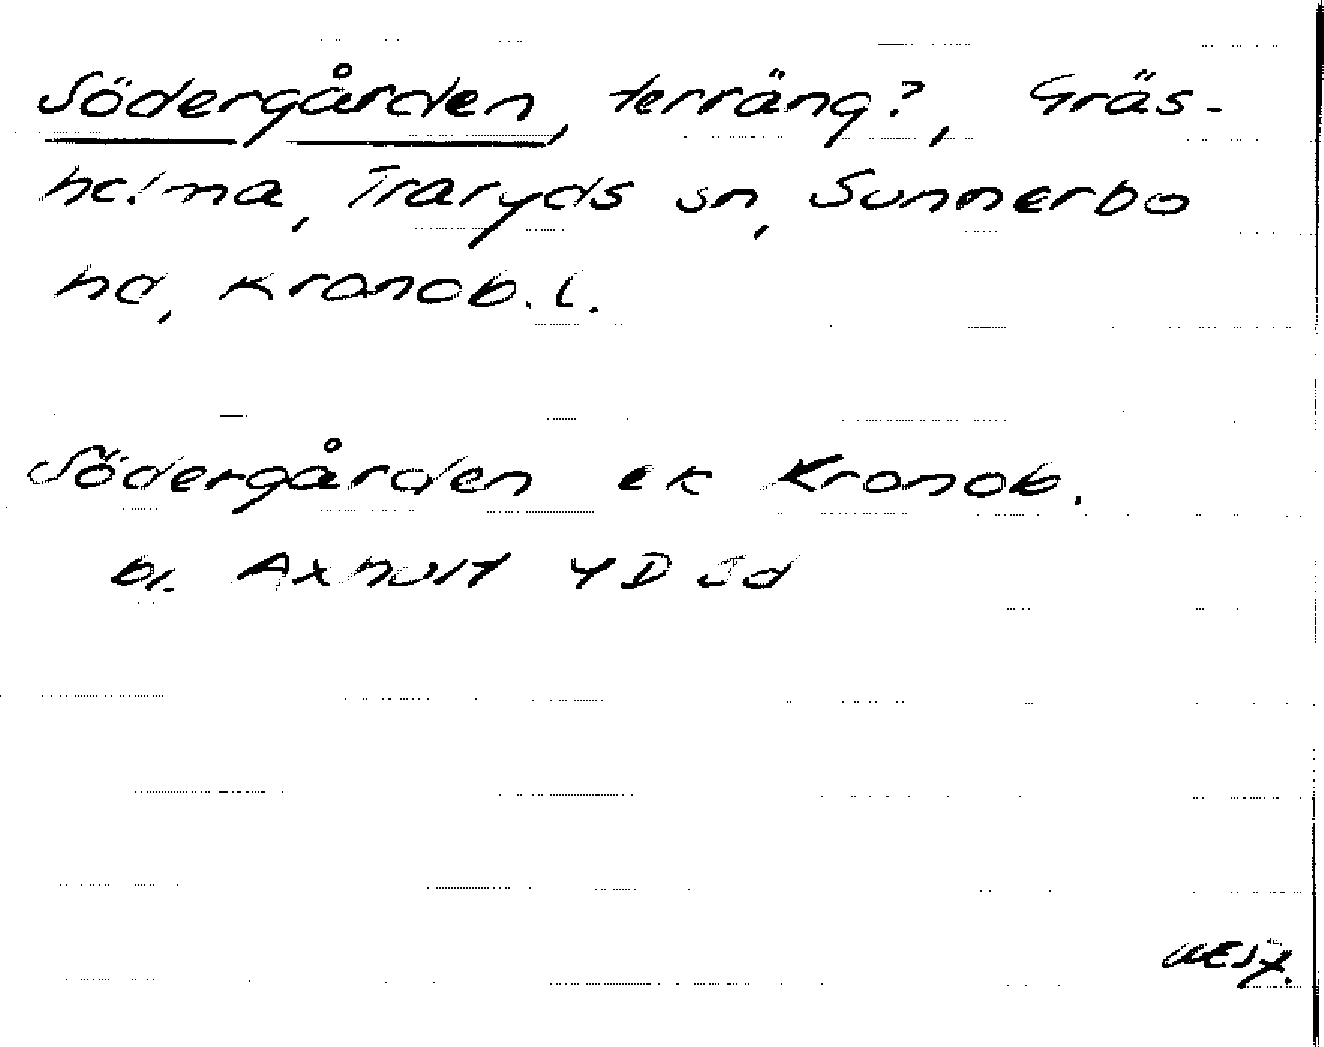 Södergården, terräng?, Gräs-
helma, Traryds sn, Sunnerbo
hd, Kronob. l.
Södergården ek Kronob.
bl. Axhult 4D Jd